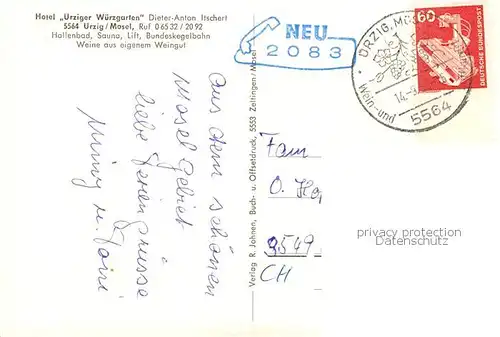 Hotel „Ürziger Würzgarten" Dieter-Anton Itschert
5564 Ürzig/Mosel, Ruf 0 65 32 / 20 92
Hallenbad, Sauna, Lift, Bundeskegelbahn
Weine aus eigenem Weingut
Aus dem schönen
Moselgebiet
liebe Feriengrüsse
Verlag R. Johnen, Buch- u. Offsetdruck, 5553 Zeltingen/Mosel
NEU
2083
ÜRZIG, MOSEL
Wein- und
14.-9.
5564
60
DEUTSCHE BUNDESPOST
Fam
O. Hg.
9549
CH
privacy protection
Datenschutz